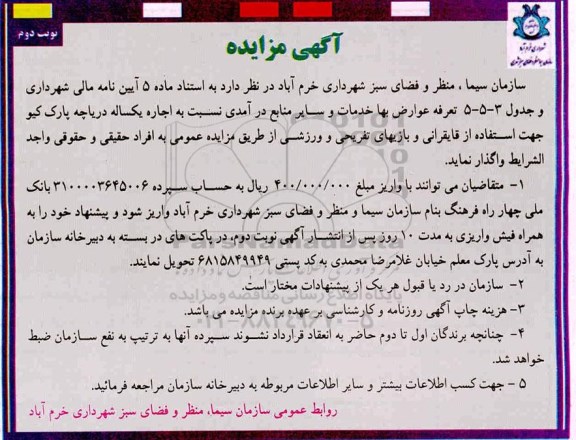 نوبت دوم
شهرداری خرم آباد
آگهی مزایده
سازمان سیما ، منظر و فضای سبز شهرداری خرم آباد در نظر دارد به استناد ماده ۵ آیین نامه مالی شهرداری
و جدول ۳-۵-۵ تعرفه عوارض بها خدمات و سایر منابع در آمدی نسبت به اجاره یکساله دریاچه پارک کیو
جهت استفاده از قایقرانی و بازیهای تفریحی و ورزشی از طریق مزایده عمومی به افراد حقیقی و حقوقی واجد
الشرایط واگذار نماید.
۱- متقاضیان می توانند با واریز مبلغ ۴۰۰/۰۰۰/۰۰۰ ریال به حساب سپرده ۳۱۰۰۰۰۳۶۴۵۰۰۶ بانک
ملی چهار راه فرهنگ بنام سازمان سیما و منظر و فضای سبز شهرداری خرم آباد واریز شود و پیشنهاد خود را به
همراه فیش واریزی به مدت ۱۰ روز پس از انتشار آگهی نوبت دوم، در پاکت های در بسته به دبیرخانه سازمان
به آدرس پارک معلم خیابان غلامرضا محمدی به کد پستی ۶۸۱۵۸۴۹۹۴۹ تحویل نمایند.
۲- سازمان در رد یا قبول هر یک از پیشنهادات مختار است.
۳- هزینه چاپ آگهی روزنامه و کارشناسی بر عهده برنده مزایده می باشد.
۴- چنانچه برندگان اول تا دوم حاضر به انعقاد قرارداد نشوند سپرده آنها به ترتیب به نفع سازمان ضبط
خواهد شد.
۵ - جهت کسب اطلاعات بیشتر و سایر اطلاعات مربوطه به دبیرخانه سازمان مراجعه فرمائید.
روابط عمومی سازمان سیما، منظر و فضای سبز شهرداری خرم آباد